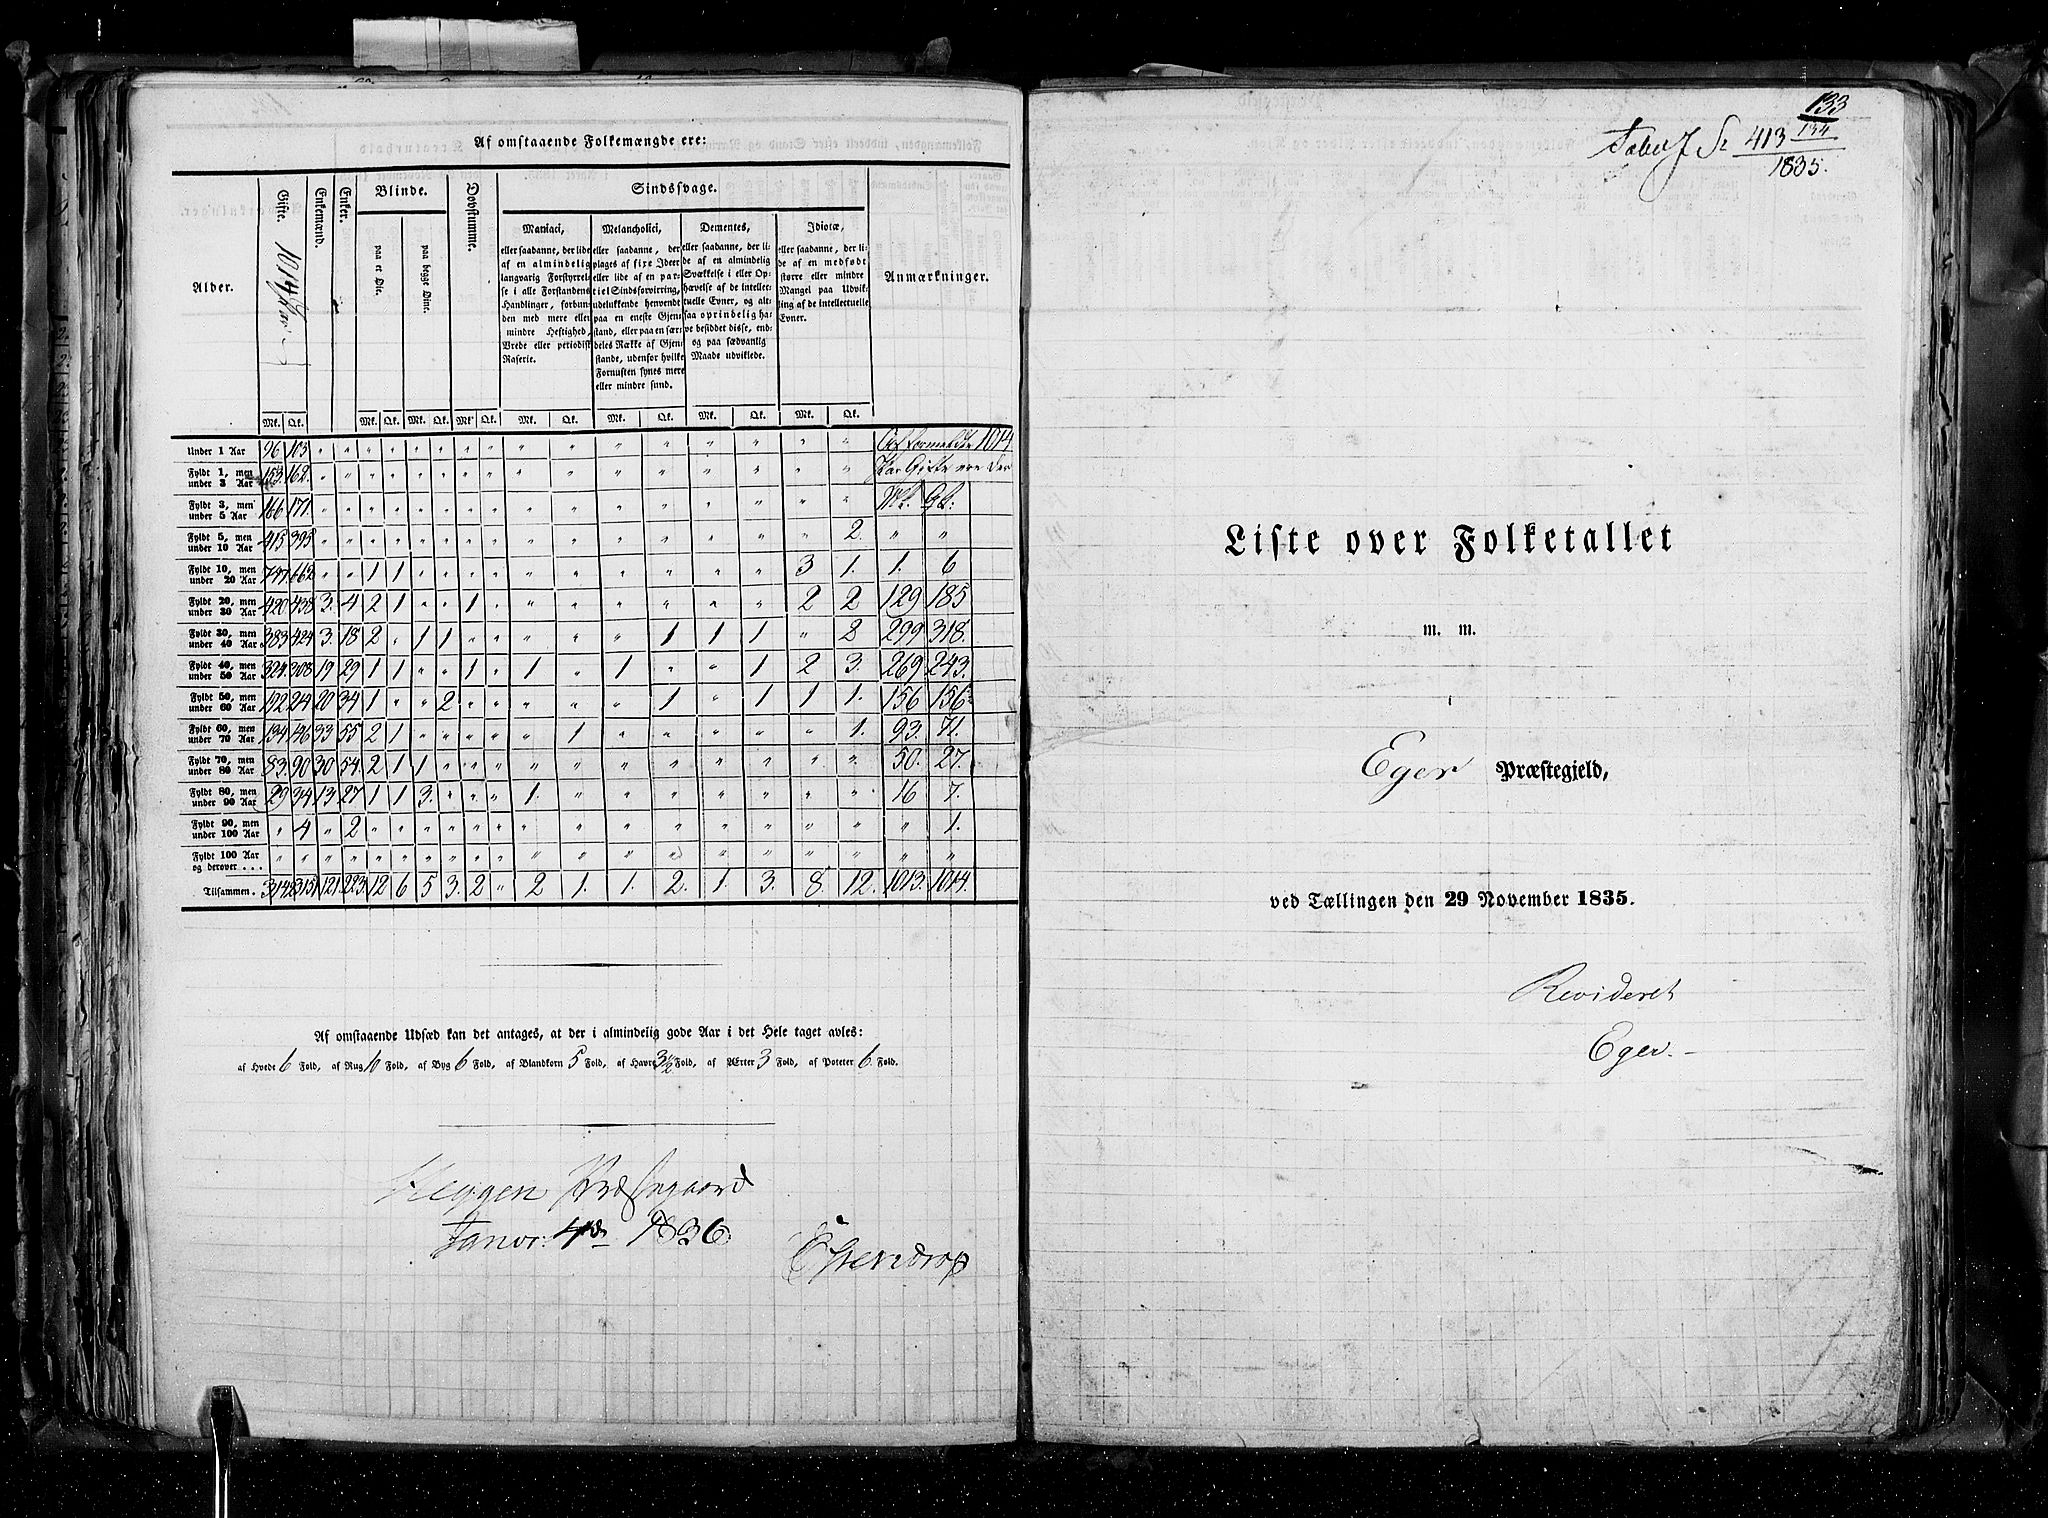 Af omstaaende Folkemængde ere:
Alder. Gifte. 1014 Par Enkemænd. Enker. Blinde. Dovstumme. Sindssvage. Anmærkninger.
paa et Øie. paa begge Øine.
Maniaci,
eller saadanne, der lide
af en almindelig
langvarig Forstyrrel-
se i alle Forstandens
Handlinger, forbun-
den med mere eller
mindre Heftighed,
Vrede eller periodisk
Raserie.
Melancholici,
eller saadanne, der
plages af fixe Ideer
eller lide af en par-
tiel Sindsforvirring,
udelukkende henvendt
paa en eneste Gjen-
stand, eller paa en sær-
deles Række af Gjen-
stande, udenfor hvilke
Fornuften synes mere
eller mindre sund.
Dementes,
eller saadanne, der li-
de af en almindelig
Svækkelse i eller Op-
hævelse af de intellec-
tuelle Evner, og alt-
saa oprindelig ha-
ve besiddet disse, end-
og paa sædvanlig
Maade udviklede.
Idiotæ,
eller saadanne, der li-
de af en medfødt
større eller mindre
Mangel paa Udvik-
ling af de intellectuelle
Evner.
Mk. Qk. Mk. Qk. Mk. Qk. Mk. Qk. Mk. Qk. Mk. Qk. Mk. Qk. Mk. Qk.
Under 1 Aar 96 103 " " " " " " " " " " " " " " " " Af formeldte 1014
Fyldt 1, men under 3 Aar 153. 162. " " " " " " " " " " " " " " " " Par Gifte ere der
Fyldt 3, men under 5 Aar 166 171. " " " " " " " " " " " " " " " " Mk. Qk:
Fyldt 5, men under 10 Aar 415 395 " " " " " " " " " " " " " " " 2. " "
Fyldt 10, men under 20 Aar 747. 662 " " 1 1 " " " " " " " " " " 3 1. 1. 6
Fyldt 20, men under 30 Aar 420 438 3. 4 2 1 " " 1 " " " " " " " 2 2 129 185
Fyldt 30, men under 40 Aar 383 424 3. 18 2 " 1 1 " " " " " 1 1 1 " 2 299 318.
Fyldt 40, men under 50 Aar 324. 303 19 29 1 1 " " 1 " 1 " 1 " " 1 2 3. 269 243.
Fyldt 50, men under 60 Aar 192 214 20 34 1 " " 2 " " " " " 1 " 1 1 1. 156 156
Fyldt 60, men under 70 Aar 134 146 33 55 2 1 " " " " " 1 " " " " " 1. 93. 71.
Fyldt 70, men under 80 Aar 83. 90 30 54. 2 1 1 " " " " " " " " " " " 50. 27.
Fyldt 80, men under 90 Aar 29 34 13 27 1 1 3. " " " 1. " " " " " " " 16 7.
Fyldt 90, men under 100 Aar " 4 " 2 " " " " " " " " " " " " " " " 1.
Fyldt 100 Aar og derover . . . " " " " " " " " " " " " " " " " " " " "
Tilsammen. 3142 3151 121. 223. 12 6 5 3. 2 " 2 1. 1. 2. 1. 3. 8. 12. 1013. 1014.
Af omstaaende Udsæd kan det antages, at der i almindelig gode Aar i det Hele taget avles:
af Hvede 6 Fold, af Rug 6 Fold, af Byg 6 Fold, af Blandkorn 5 Fold, af Havre 3½ Fold, af Ærter 3 Fold, af Poteter 6 Fold.
Heggen Præstegaard
Janvr: 4de 1836
133
134
413
1835.
Liste over Folketallet
m. m.
i
Eger Præstegjeld,
ved Tællingen den 29 November 1835.
Revideret
Eger.